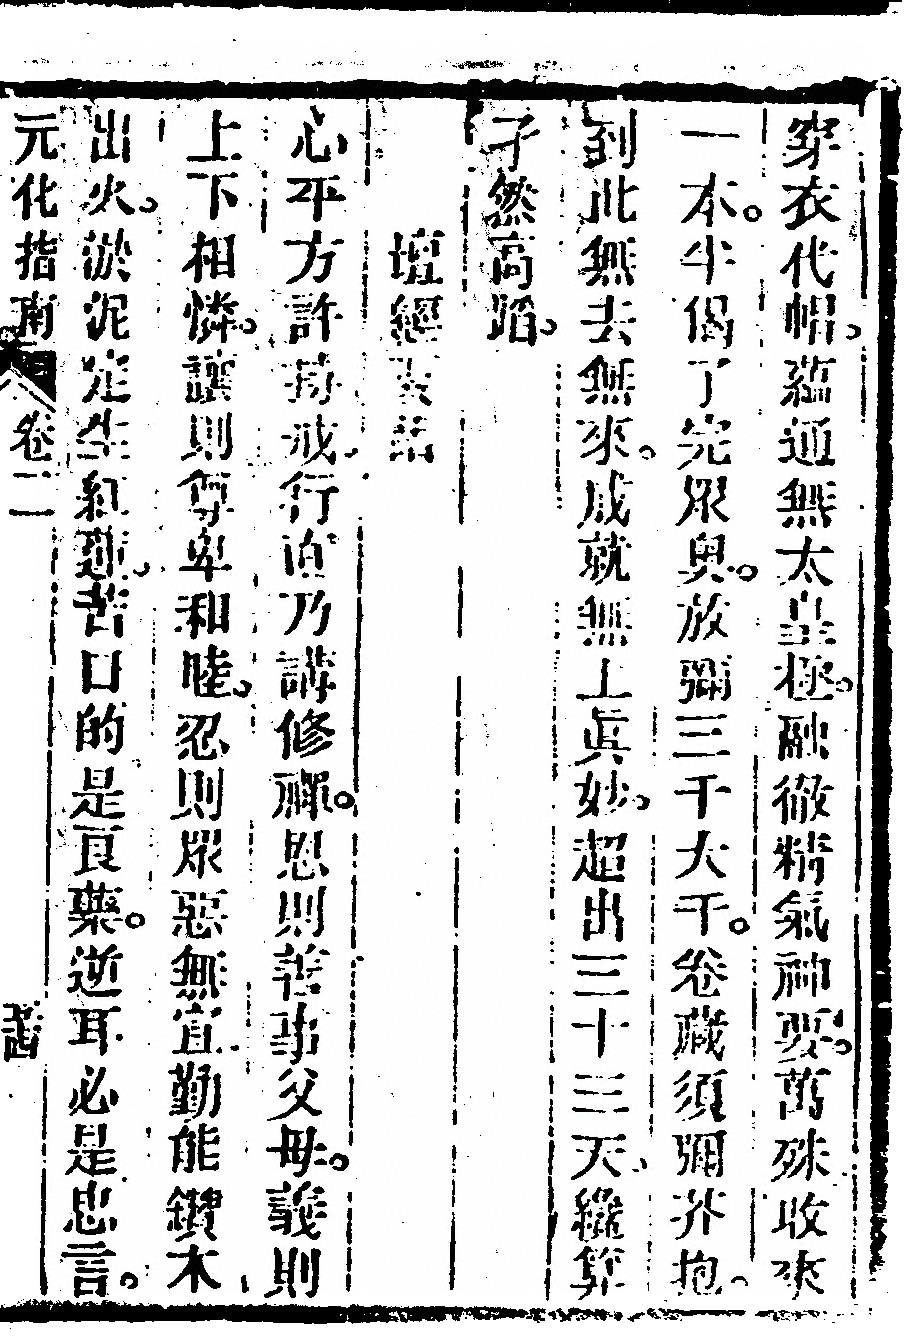 穿衣代帽。蘊通無太皇極。融徹精氣神要。萬殊收來
一本。半偈了完眾奧。放彌三千大千。卷藏須彌芥抱。
到此無去無來。成就無上眞妙。超出三十三天、纔算
孑然高蹈。
壇經
心平方許持戒、行直乃講修禪。恩則善事父母。義則
上下相憐。讓則尊卑和睦。忍則眾惡無宣。勤能鑽木
出火。淤泥定生紅蓮。苦口的是良藥。逆耳必是忠言。
元化指南 卷二